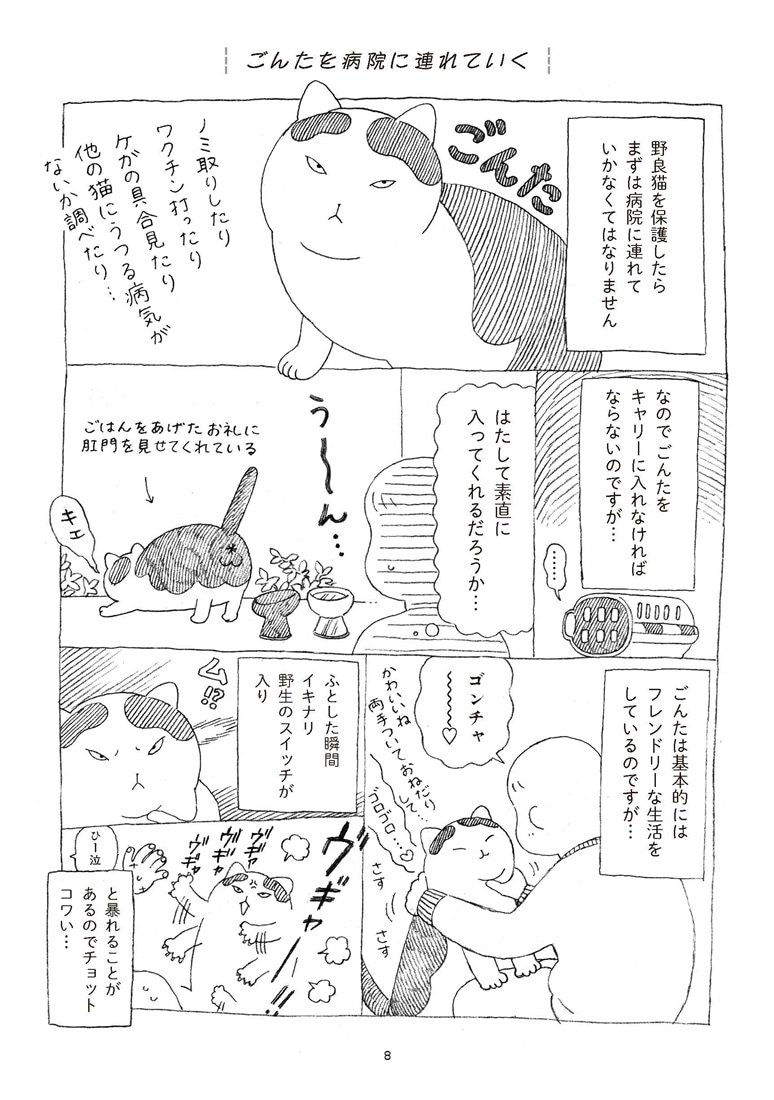 ごんたを病院に連れていく
野良猫を保護したら
まずは病院に連れて
いかなくてはなりません
ごんた
ノミ取りしたり
ワクチン打ったり
ケガの具合見たり
他の猫にうつる病気が
ないか調べたり…
なのでごんたを
キャリーに入れなければ
ならないのですが…
……
はたして素直に
入ってくれるだろうか…
う〜〜ん…
ごはんをあげたお礼に
肛門を見せてくれている
キェ
ごんたは基本的には
フレンドリーな生活を
しているのですが…
ゴンチャ
〜〜〜♡
かわいいね
両手ついておねだり
して…
ゴロゴロ…♡
さす
さす
ふとした瞬間
イキナリ
野生のスイッチが
入り
ム!?
ヴギャーーー!!
ヴギャ
ヴギャ
ヴギャ
ひー泣
と暴れることが
あるのでチョット
コワい…
8